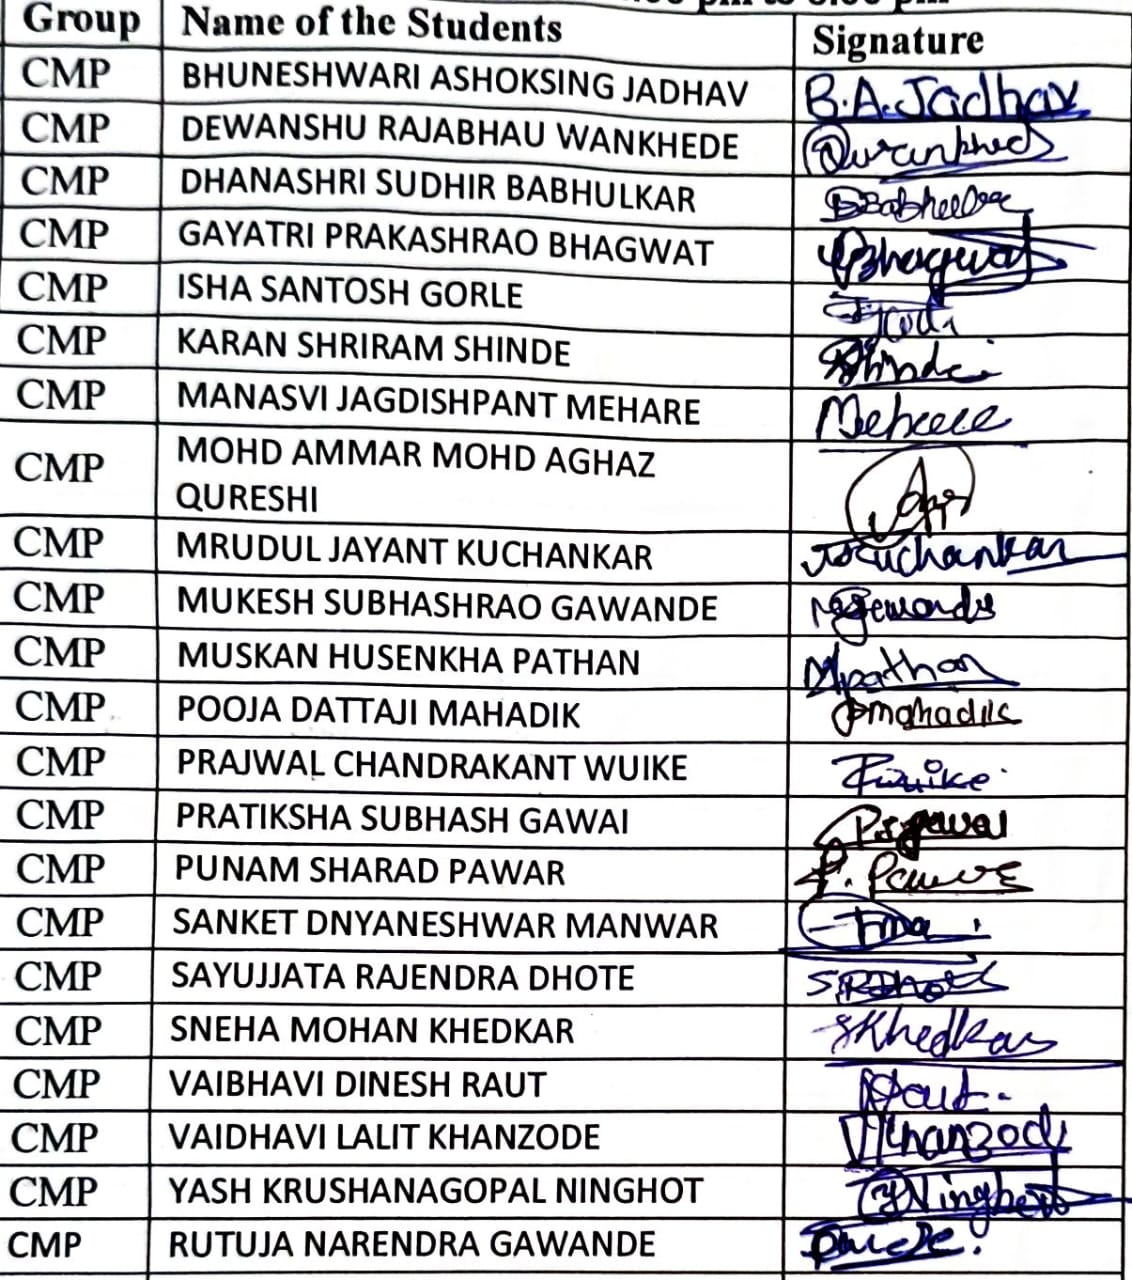 pm to
pm
Group Name of the Students Signature
CMP BHUNESHWARI ASHOKSING JADHAV B.A.Jadhav
CMP DEWANSHU RAJABHAU WANKHEDE
CMP DHANASHRI SUDHIR BABHULKAR
CMP GAYATRI PRAKASHRAO BHAGWAT Bhagwat
CMP ISHA SANTOSH GORLE
CMP KARAN SHRIRAM SHINDE
CMP MANASVI JAGDISHPANT MEHARE
CMP MOHD AMMAR MOHD AGHAZ
QURESHI
CMP MRUDUL JAYANT KUCHANKAR Kuchankar
CMP MUKESH SUBHASHRAO GAWANDE
CMP MUSKAN HUSENKHA PATHAN Mpathan
CMP POOJA DATTAJI MAHADIK Pmahadik
CMP PRAJWAL CHANDRAKANT WUIKE Pwuike
CMP PRATIKSHA SUBHASH GAWAI
CMP PUNAM SHARAD PAWAR
CMP SANKET DNYANESHWAR MANWAR
CMP SAYUJJATA RAJENDRA DHOTE SRDhote
CMP SNEHA MOHAN KHEDKAR SKhedkar
CMP VAIBHAVI DINESH RAUT
CMP VAIDHAVI LALIT KHANZODE
CMP YASH KRUSHANAGOPAL NINGHOT
CMP RUTUJA NARENDRA GAWANDE